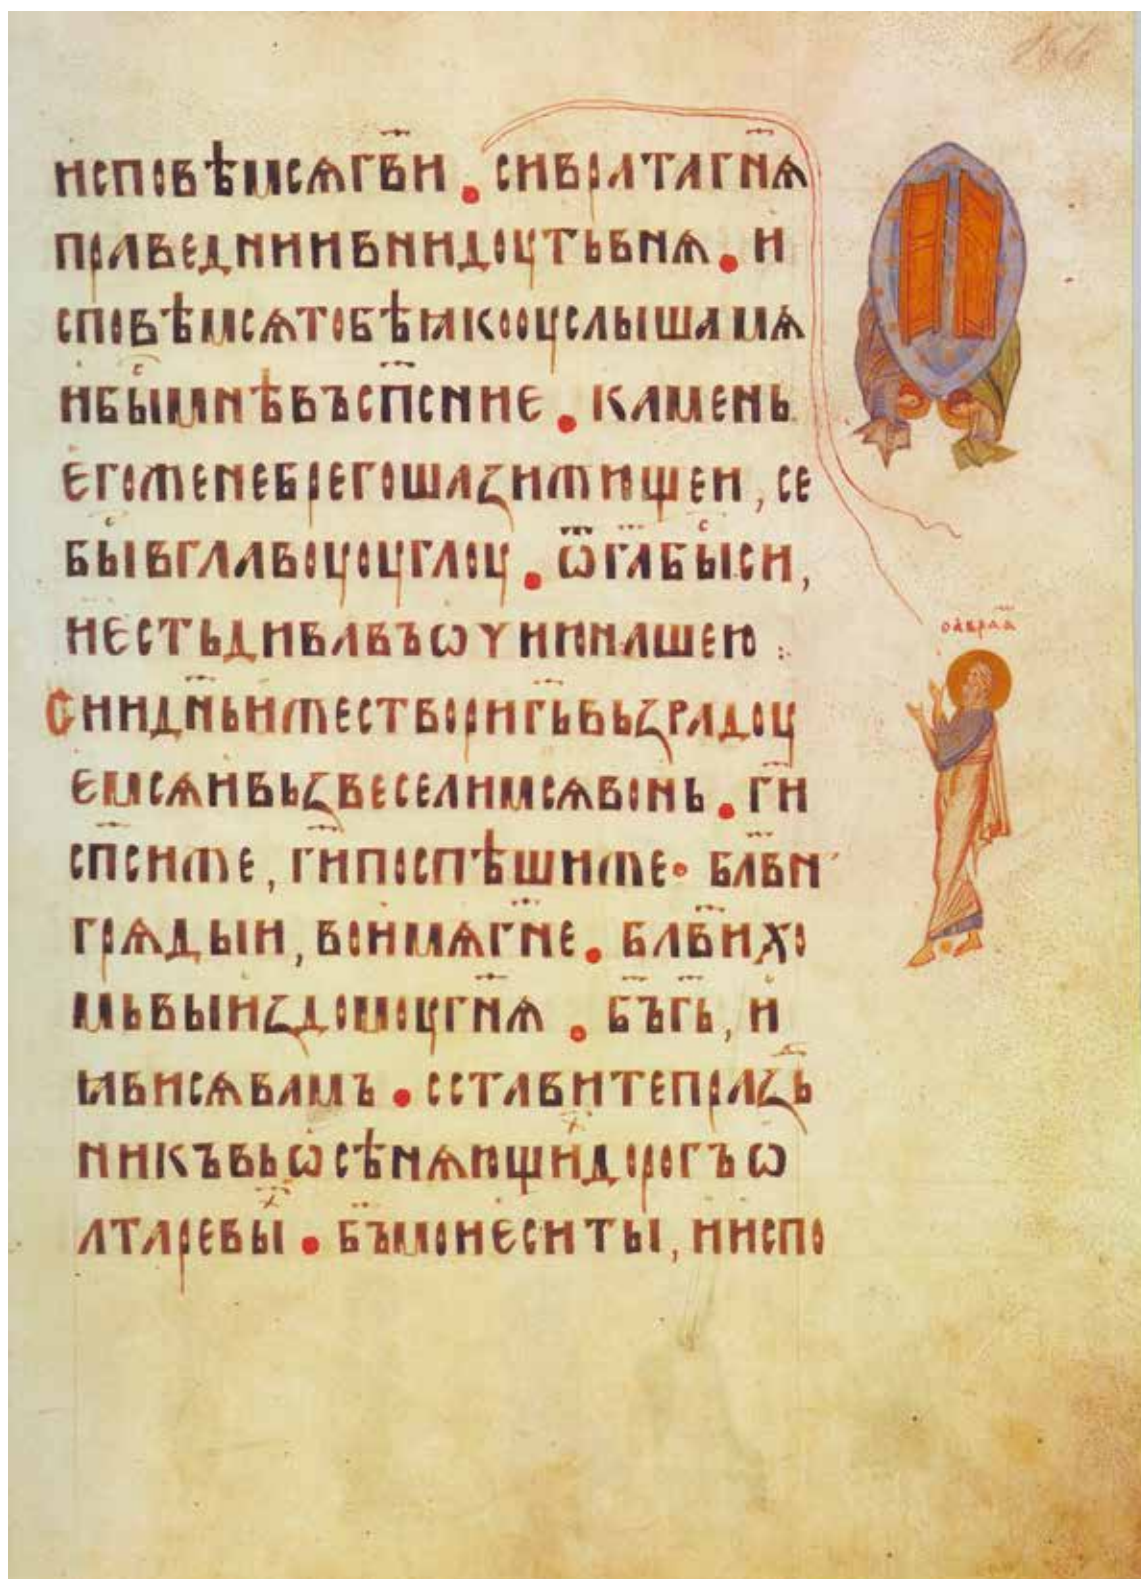 исповѣмсѧгв҃и . сивратагн҃ѧ
праведниивнидоутьвнѧ . и
сповѣмсѧтобѣꙗкооуслышамѧ
ибыⷭ҇мнѣвъсп҃сние . камень
егоменебрегошаꙁижющеи , се
быⷭ҇вглавоуоуглоу . ѿг҃абыⷭ҇си ,
иестьдивавъѡчиюнашею :
Сиид҃ньижестворигь҃вьꙁрадоу
емсѧивьꙁвеселимсѧвонь . ги҃
сп҃сиже , ги҃поспѣшиже • блв҃н
грѧдыи , воимѧгн҃е . блв҃ихо
мьвыиꙁдомоугн҃ѧ . бъ҃гь҃ , и
ꙗвисѧвамъ . сставитепраꙁⷣь
никъвьѡсѣнѧющиⷯдорогъѡ
лтаревыⷯ . бъ҃моиеситы , ииспо
оавраа҃